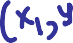 (x₁, y